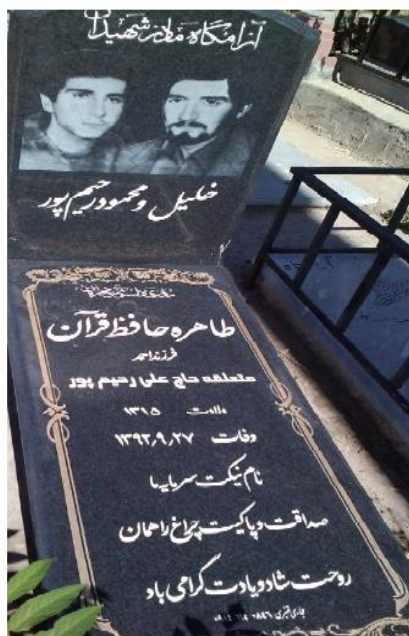 آرامگاه مادر شهیدان
خلیل و محمود رحیم پور
طاهره حافظ قرآن
فرزند احمد
متعلقه حاج علی رحیم پور
ولادت ۱۳۱۵
وفات ۱۳۹۲٫۹٫۲۷
نام نیکت سرمایه ما
صداقت و پاکیت چراغ راهمان
روحت شاد و یادت گرامی باد